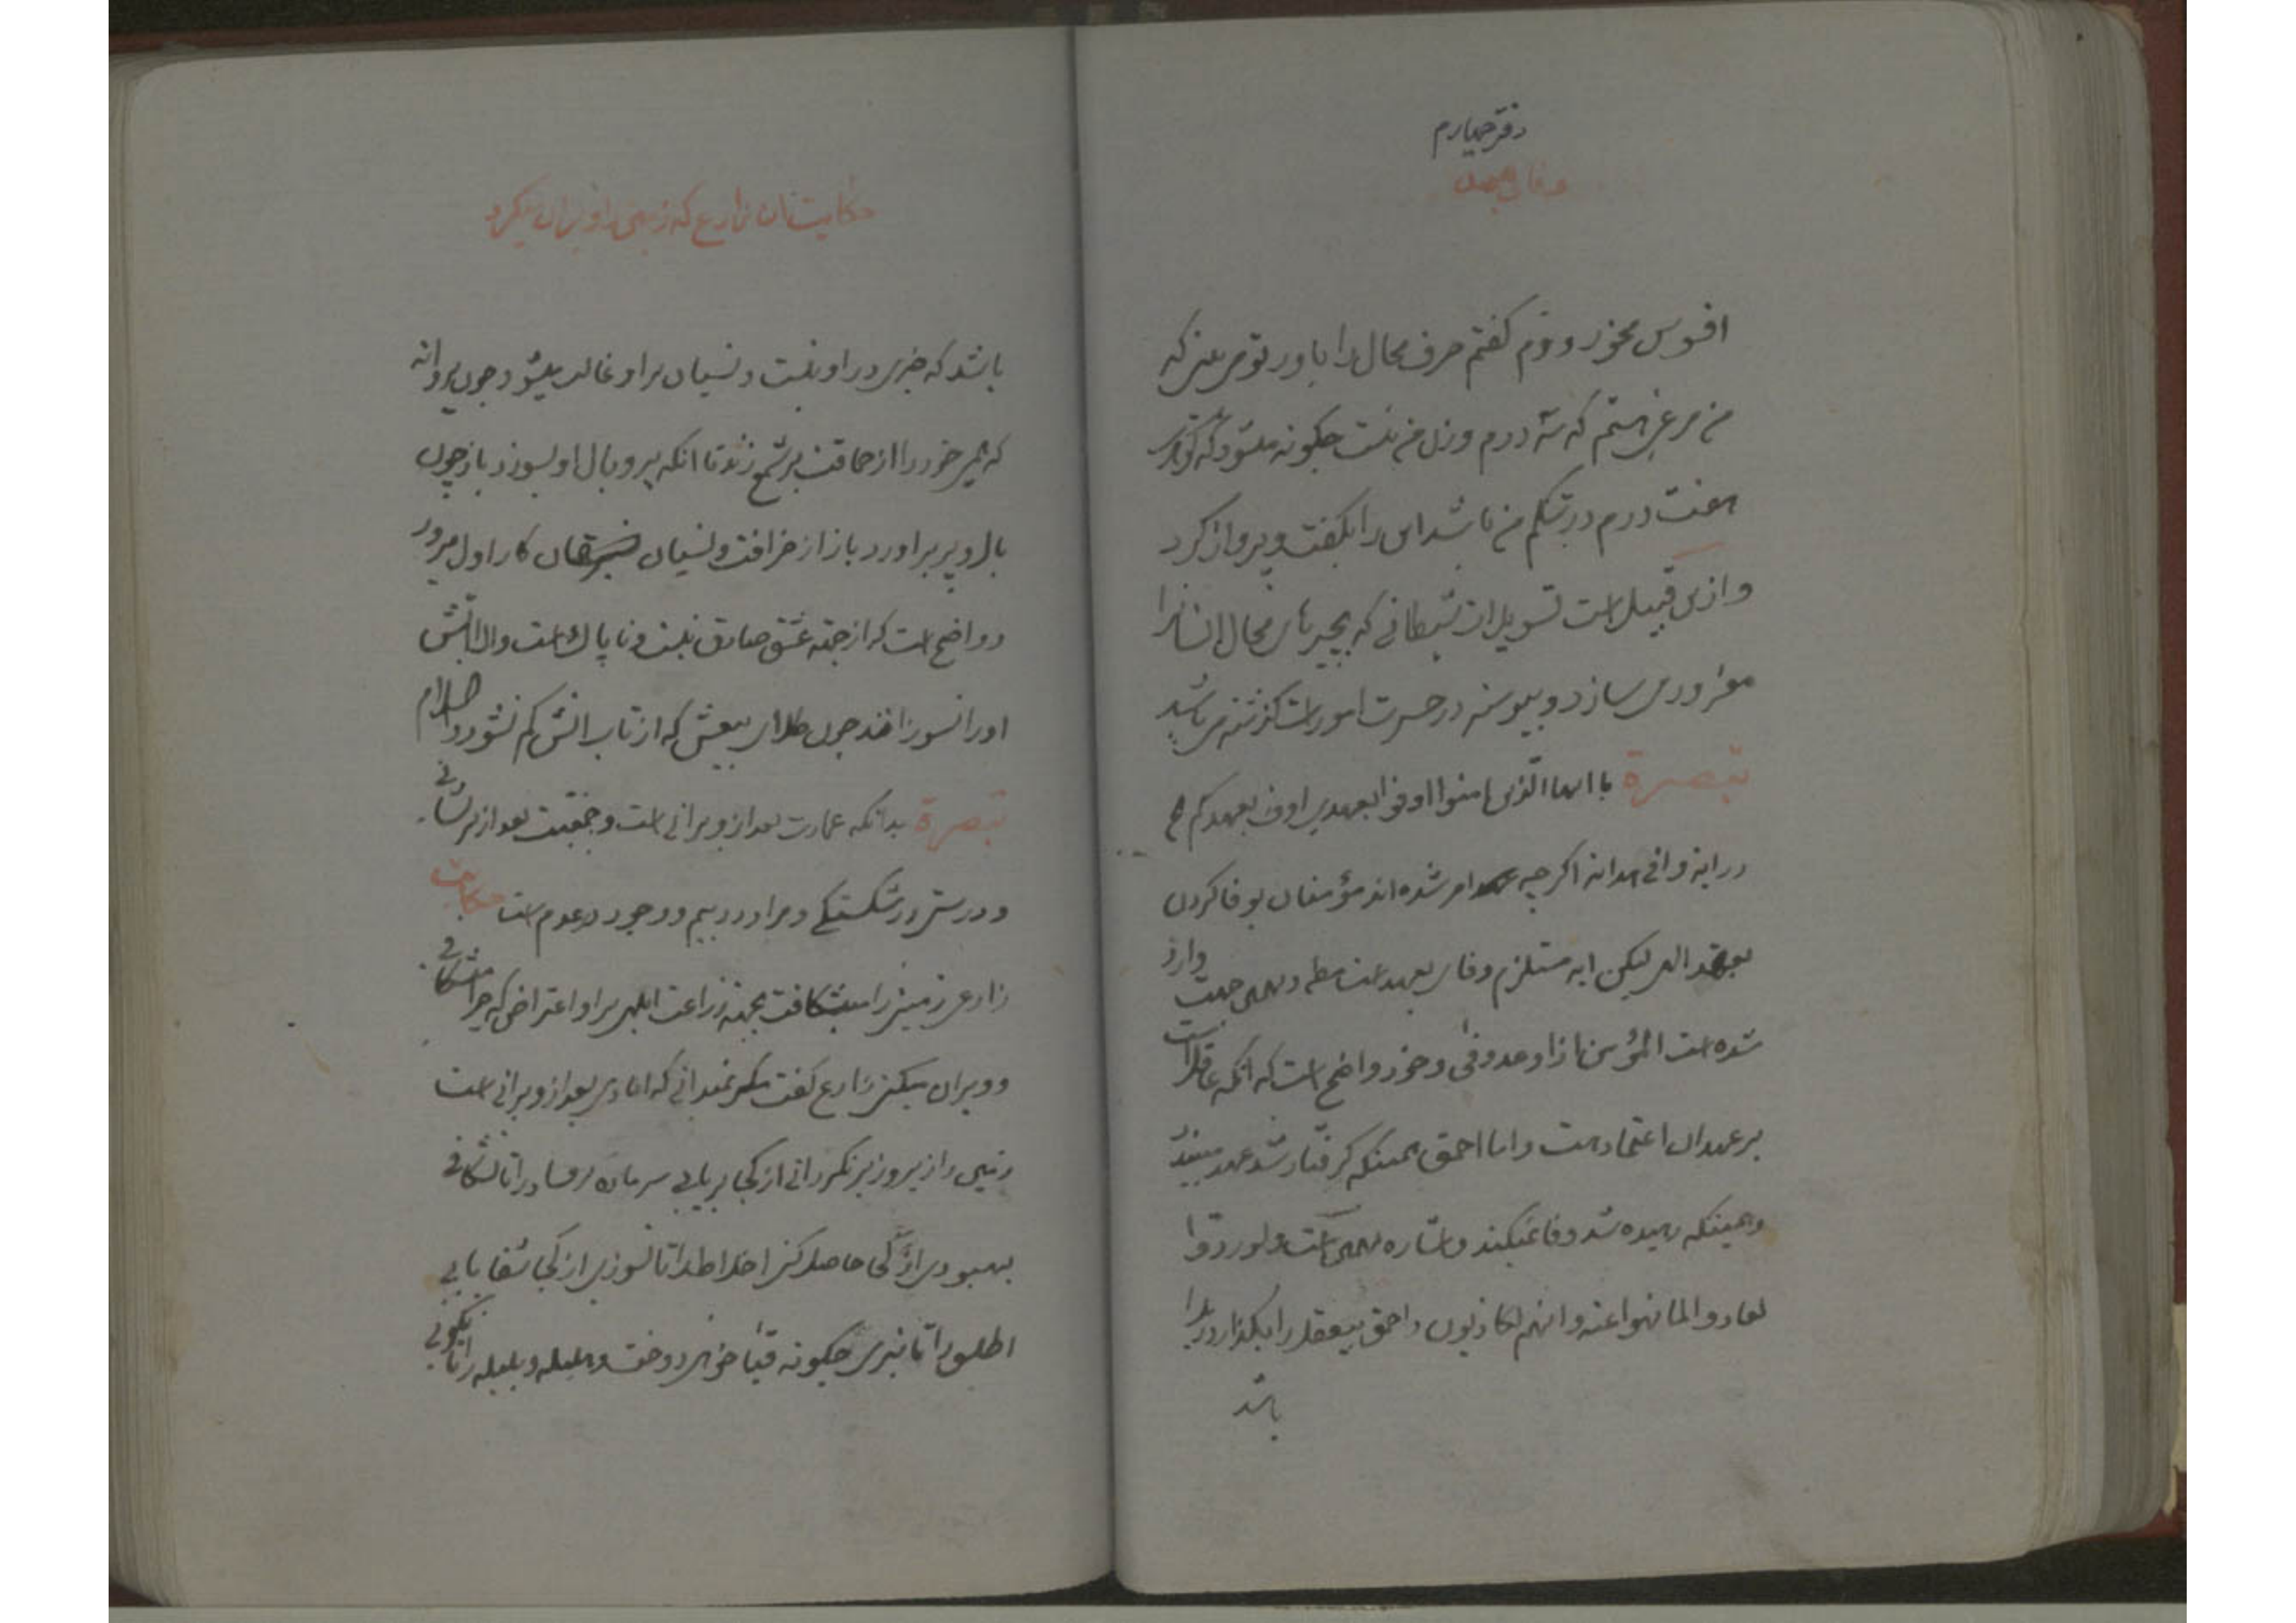 دفتر چهارم
وفای بعهد
افسوس مخور دوم گفتم حرف محال را باور
من مرغی هستم که سه درم وزن من نیست چگونه میشود که
هفت درم در شکم من باشد این را بگفت و پرواز کرد
و ازین قبیل است تسویلات شیطانی که بچیزهای محال انسانرا
مغرور می سازد و پیوسته در حسرت امورات گذشته می باشد
تبصرة یا ایها الذین امنوا اوفوا بعهدی اوف بعهدکم
در ایه وافی هدایه اگرچه امر شده اند مؤمنان بوفا کردن
بعهد الهی لیکن ایه مستلزم وفای بعهد است وارد
شده است المؤمن اذا وعد وفی و خود واضح است که آنکه عاقلست
بر عهد ان اعتماد هست و اما احمق همینکه گرفتار شد عهد میبندد
و همینکه رهیده شد وفا نمیکند و اشاره است ولو ردوا
لعادوا لما نهوا عنه و انهم لکاذبون احمق بیعقل را بگذار
باشد
حکایت ان زارع که زمین را ویران میکرد
باشد که خبری در او نیست و نسیان بر او غالب میشود چون پروانه
که خود را از حماقت بر شمع زند تا انکه پر و بال او بسوزد باز چون
بال و پر براورد باز از خرافت و نسیان کار اول میرود
و واضح است که از جهة عشق صادق نیست و ناپاک است والا اتش
او را نسوزاند چون طلای بیغش که از تاب اتش کم نشود والسلام
تبصرة بدانکه عمارت بعد از ویرانی است و جمعیت بعد از پریشانی
و درستی در شکستگی و مراد در بیم و وجود در عدم است حکایت
زارعی زمینی را میشکافت بجهة زراعت ابلهی بر او اعتراض که چرا میشکافی
و ویران میکنی زارع گفت مگر نمیدانی که ابادی بعد از ویرانی است
زمین را زیر و زبر نکردانی از کجا بر یابی سر ماده پر فساد را تا نشکافی
بهبودی از کجا حاصل کنی اخلاط را تا نسوزی از کجا شفا یابی
اطلس را تا نبری چگونه قبا خواهی دوخت و هلیله و بلیله را تا نکوبی